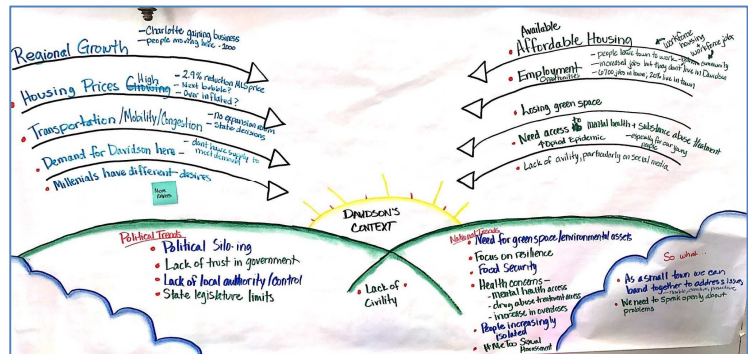 Regional Growth
- Charlotte gaining business
- people moving here - 2000
Housing Prices High Growing
- 2.9% reduction MLS price
- Next bubble?
- Over inflated?
Transportation/Mobility/Congestion
- No expansion room
- State decisions
Demand for Davidson here
- don't have supply to
meet demand
Millenials have different desires
Available
Affordable Housing
workforce
housing
workforce jobs
Employment
Opportunities
- people leave town to work
community
- increased jobs but they don't live in Davidson
- 6700 jobs in town; 20% live in town
Losing green space
Need access to mental health + substance abuse treatment
↑ Opioid Epidemic
- especially for our young
people
Lack of civility, particularly on social media
DAVIDSON'S
CONTEXT
Political Trends
Political Silo-ing
Lack of trust in government
Lack of local authority/control
State legislature limits
Lack of
Civility
National Trends
Need for green space/environmental assets
Focus on resilience
Food Security
Health concerns -
- mental health access
- drug abuse treatment access
- increase in overdoses
People increasingly
isolated
#MeToo Sexual
Harassment
So what...
As a small town we can
band together to address issues
We need to speak openly about
problems